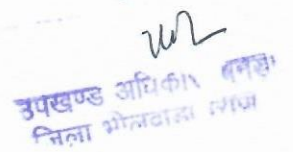 उपखण्ड अधिकारी बनेड़ा
जिला भीलवाड़ा (राज)